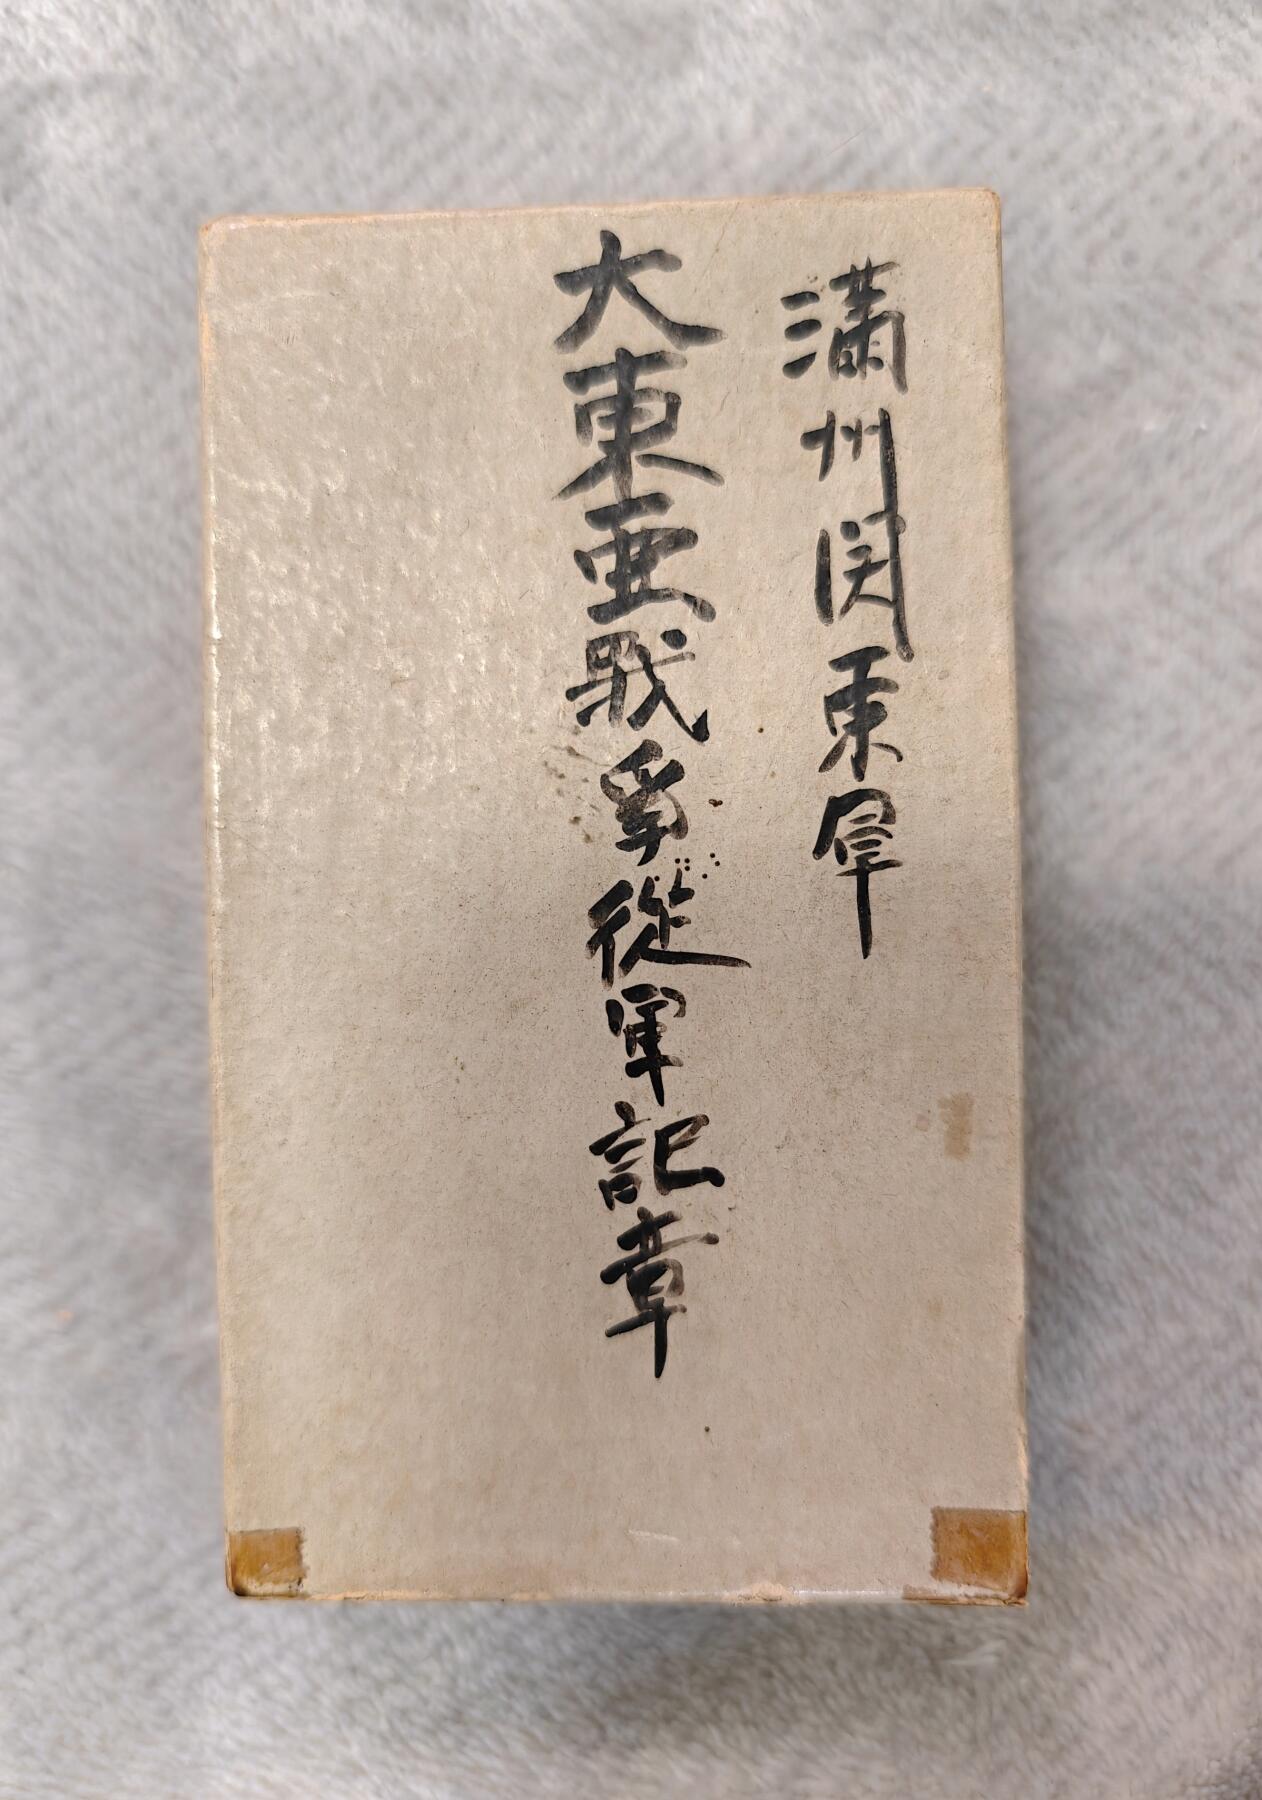 満州関東軍
大東亜戦争従軍記章